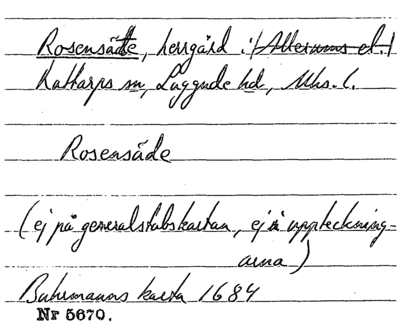 Rosensätte, herrgård i Allerums el.
Kattarps sn, Luggude hd, Mhs. l.
Rosensäde
(ej på generalstabskartan, ej i uppteckning-
arna)
Buhrmanns karta 1684
Nr 5670.